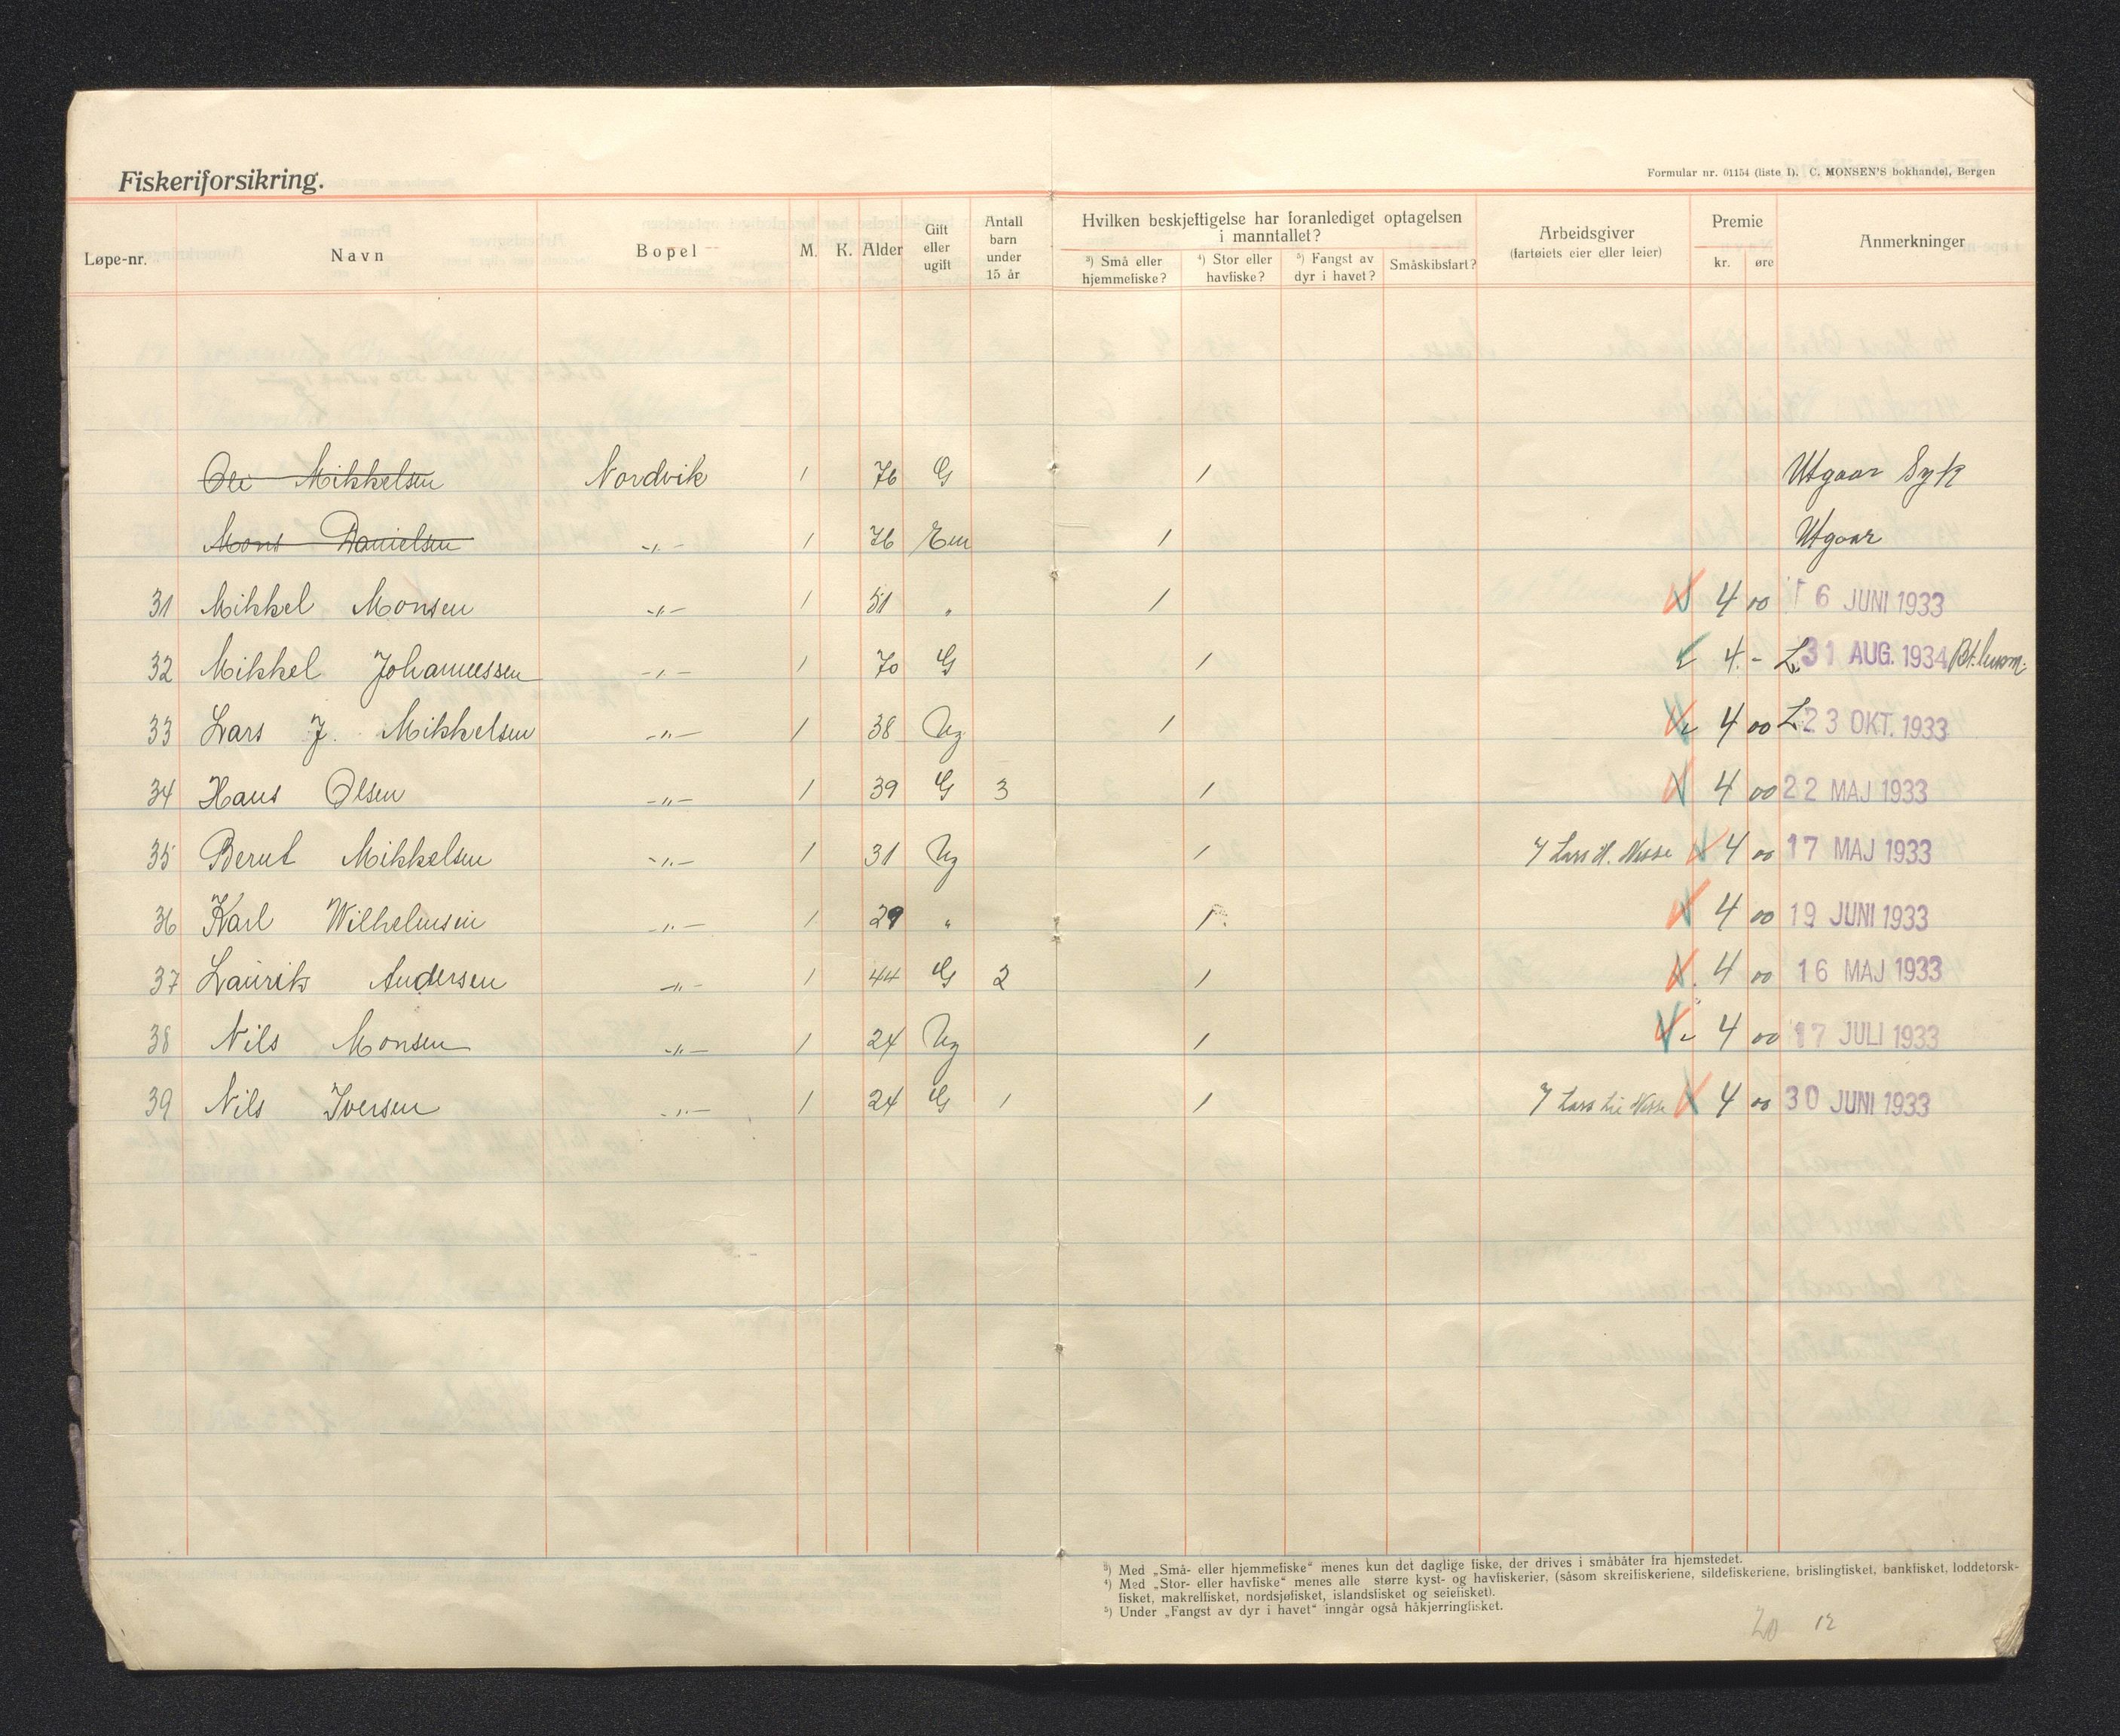 Fiskeriforsikring.
Formular nr. 01154 (liste I). C. MONSEN'S bokhandel, Bergen
Løpe-nr. Navn Bopel M. K. Alder Gift eller ugift Antall barn under 15 år Hvilken beskjeftigelse har foranlediget optagelsen i manntallet? ³) Små eller hjemmefiske? ⁴) Stor eller havfiske? ⁵) Fangst av dyr i havet? Småskibsfart? Arbeidsgiver (fartøiets eier eller leier) Premie kr. øre Anmerkninger
Ole Mikkelsen Nordvik 1 76 G 1 Utgaar Syk
Mons Danielsen -"- 1 76 Em 1 Utgaar
31 Mikkel Monsen -"- 1 51 " 1 4 00 16 JUNI 1933
32 Mikkel Johannessen -"- 1 70 G 1 4.- L. 31 AUG. 1934
33 Lars J. Mikkelsen -"- 1 38 Ug 1 4 00 L. 23 OKT. 1933
34 Hans Olsen -"- 1 39 G 3 1 4 00 22 MAJ 1933
35 Bernt Mikkelsen -"- 1 31 Ug 1 Lars H. Nesse 4 00 17 MAJ 1933
36 Karl Wilhelmsen -"- 1 29 " 1 4 00 19 JUNI 1933
37 Laurits Andersen -"- 1 44 G 2 1 4 00 16 MAJ 1933
38 Nils Monsen -"- 1 24 Ug 1 4 00 17 JULI 1933
39 Nils Iversen -"- 1 24 G 1 1 Lars Nesse 4 00 30 JUNI 1933
³) Med „Små- eller hjemmefiske“ menes kun det daglige fiske, der drives i småbåter fra hjemstedet.
⁴) Med „Stor- eller havfiske“ menes alle større kyst- og havfiskerier, (såsom skreifiskeriene, sildefiskeriene, brislingfisket, bankfisket, loddetorsk-
fisket, makrelfisket, nordsjøfisket, islandsfisket og seiefisket).
⁵) Under „Fangst av dyr i havet“ inngår også håkjerringfisket.
20 12